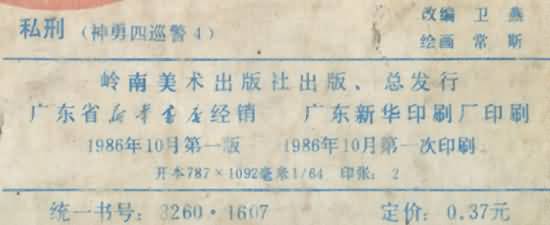 私刑（神勇四巡警4）
改编 卫燕
绘画 常斯
岭南美术出版社出版、总发行
广东省新华书店经销 广东新华印刷厂印刷
1986年10月第一版 1986年10月第一次印刷
开本787×1092毫米1/64 印张：2
统一书号：8260·1607 定价：0.37元